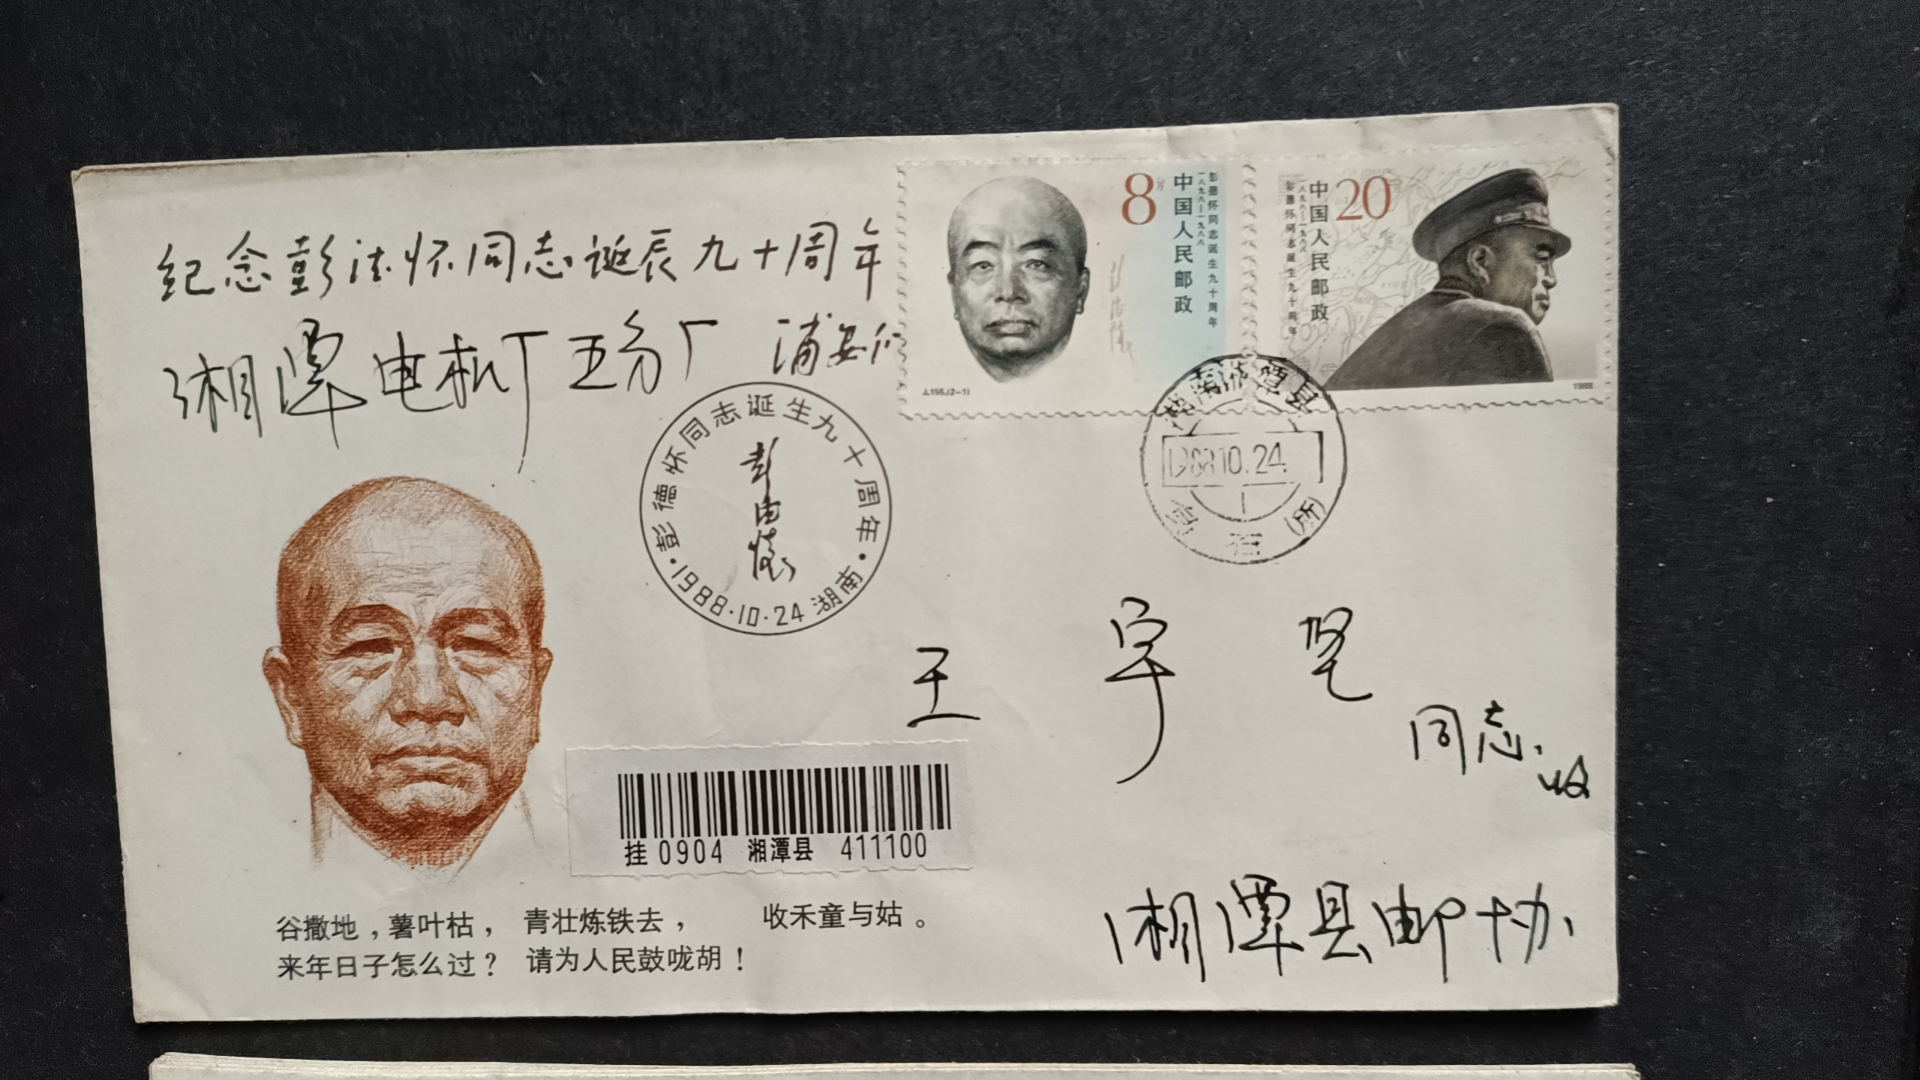 纪念彭德怀同志诞辰九十周年
湘潭电机厂五分厂 浦安仁
8分
中国人民邮政
彭德怀同志诞生九十周年
一八九八—一九八八
J.155.(2-1)
20
中国人民邮政
一八九八—一九八八
彭德怀同志诞生九十周年
1988
彭德怀同志诞生九十周年
彭德怀
1988·10·24 湖南
湖南湘潭县
1988.10.24
(所)
王宇
同志收
挂 0904 湘潭县 411100
谷撒地，薯叶枯， 青壮炼铁去， 收禾童与姑。
来年日子怎么过？ 请为人民鼓咙胡！
湘潭县邮协